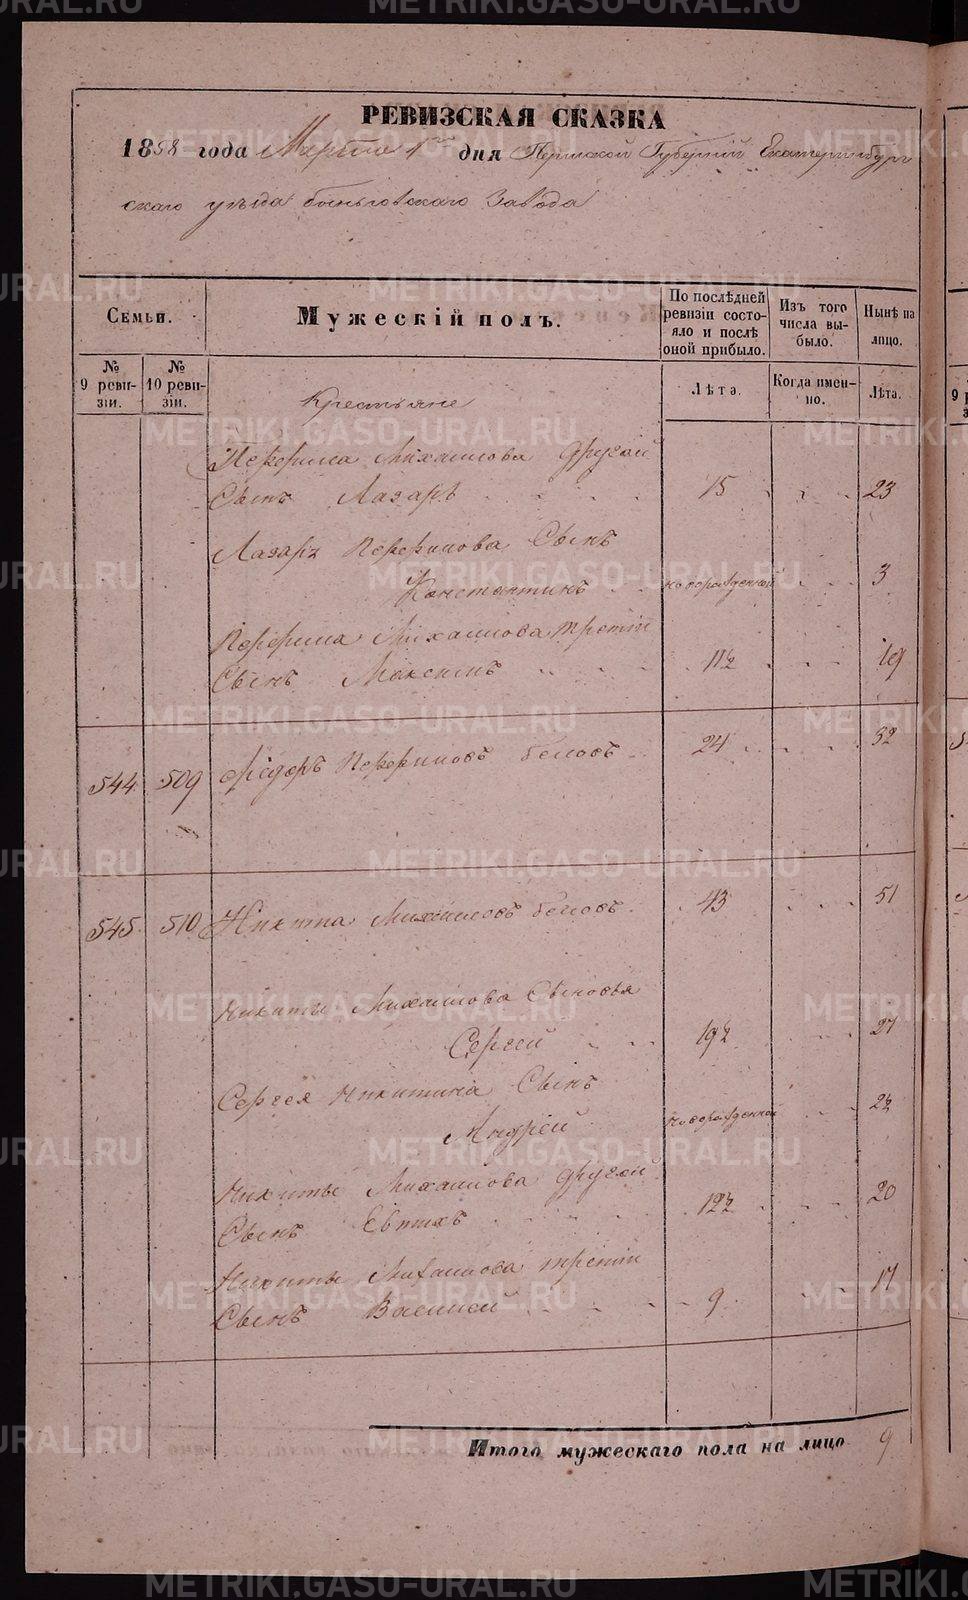 РЕВИЗСКАЯ СКАЗКА
1858 года Марта 1го дня Пермской Губерніи Екатеринбург
скаго уезда Завода
Семьи.
Мужескій полъ.
По послѣдней ревизіи состояло и послѣ оной прибыло.
Изъ того числа выбыло.
Нынѣ на лицо.
№ 9 ревизіи.
№ 10 ревизіи.
Лѣта.
Когда именно.
Лѣта.
Крестьяне
Михайлова другой
Сынъ Лазарь 15 23
Лазаря Сынъ
Константинъ новорожденной 3
Михайлова третій
Сынъ Максимъ 11½ 19
544 509 Федоръ Беловъ 24 32
545 510 Никита Михайловъ Беловъ 43 51
Никиты Михайлова Сыновья
Сергей 19½ 27
Сергея Никитина Сынъ
Андрей новорожденной 2½
Никиты Михайлова другой
Сынъ 12½ 20
Никиты Михайлова третій
Сынъ Василей 9 17
Итого мужескаго пола на лицо 9
METRIKI.GASO-URAL.RU